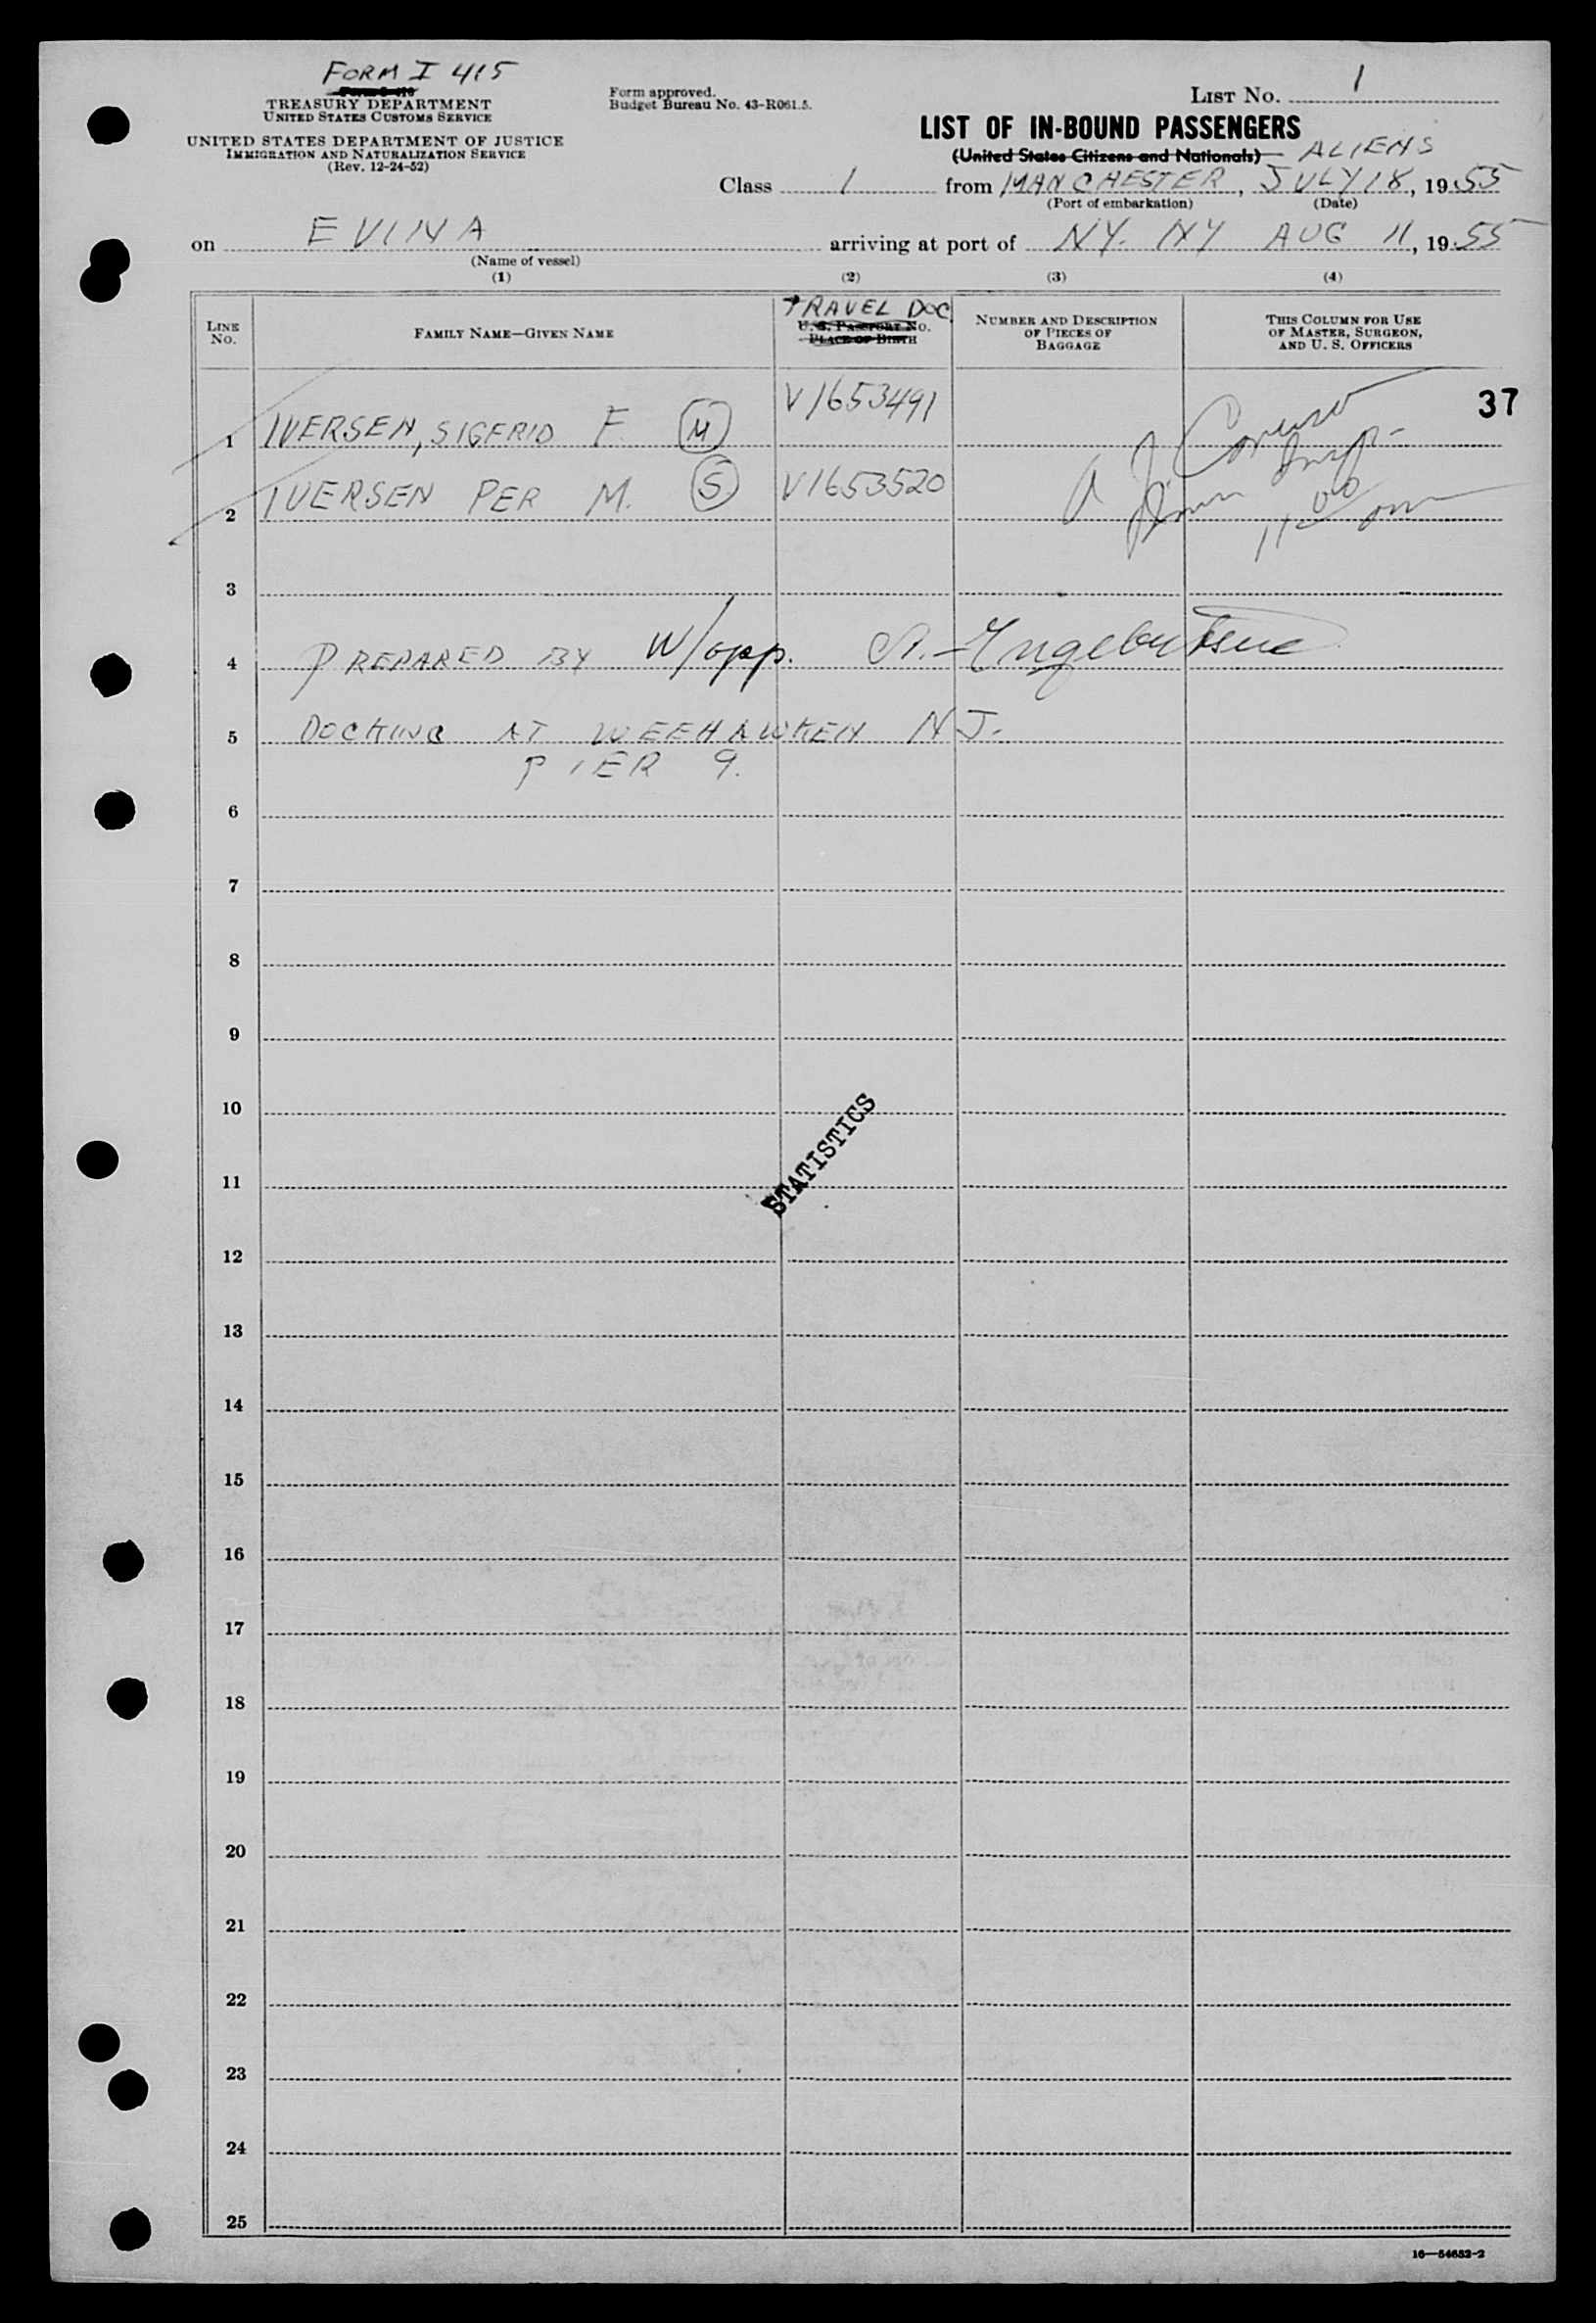 FORM I 415
TREASURY DEPARTMENT
UNITED STATES CUSTOMS SERVICE
UNITED STATES DEPARTMENT OF JUSTICE
IMMIGRATION AND NATURALIZATION SERVICE
(Rev. 12-24-52)
Form approved.
Budget Bureau No. 43-R061.5.
LIST NO. 1
LIST OF IN-BOUND PASSENGERS
(United States Citizens and Nationals) ALIENS
Class 1 from MANCHESTER, JULY 18, 1955
(Port of embarkation) (Date)
on EVINA arriving at port of NY. NY AUG 11, 1955
(Name of vessel)
(1) (2) (3) (4)
LINE NO.
FAMILY NAME—GIVEN NAME
TRAVEL DOC
U. S. PASSPORT NO.
PLACE OF BIRTH
NUMBER AND DESCRIPTION
OF PIECES OF
BAGGAGE
THIS COLUMN FOR USE
OF MASTER, SURGEON,
AND U. S. OFFICERS
37
1 IVERSEN, SIGFRID F. M V1653491
2 IVERSEN PER M. S V1653520
3
4 PREPARED BY W/opp.
5 DOCKING AT WEEHAWKEN N.J.
PIER 9.
6
7
8
9
10
STATISTICS
11
12
13
14
15
16
17
18
19
20
21
22
23
24
25
16—54652-2